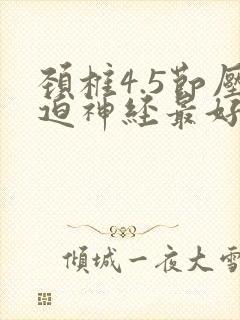 頚柱4.5節壓
迫神経最好
傾城一夜大雪